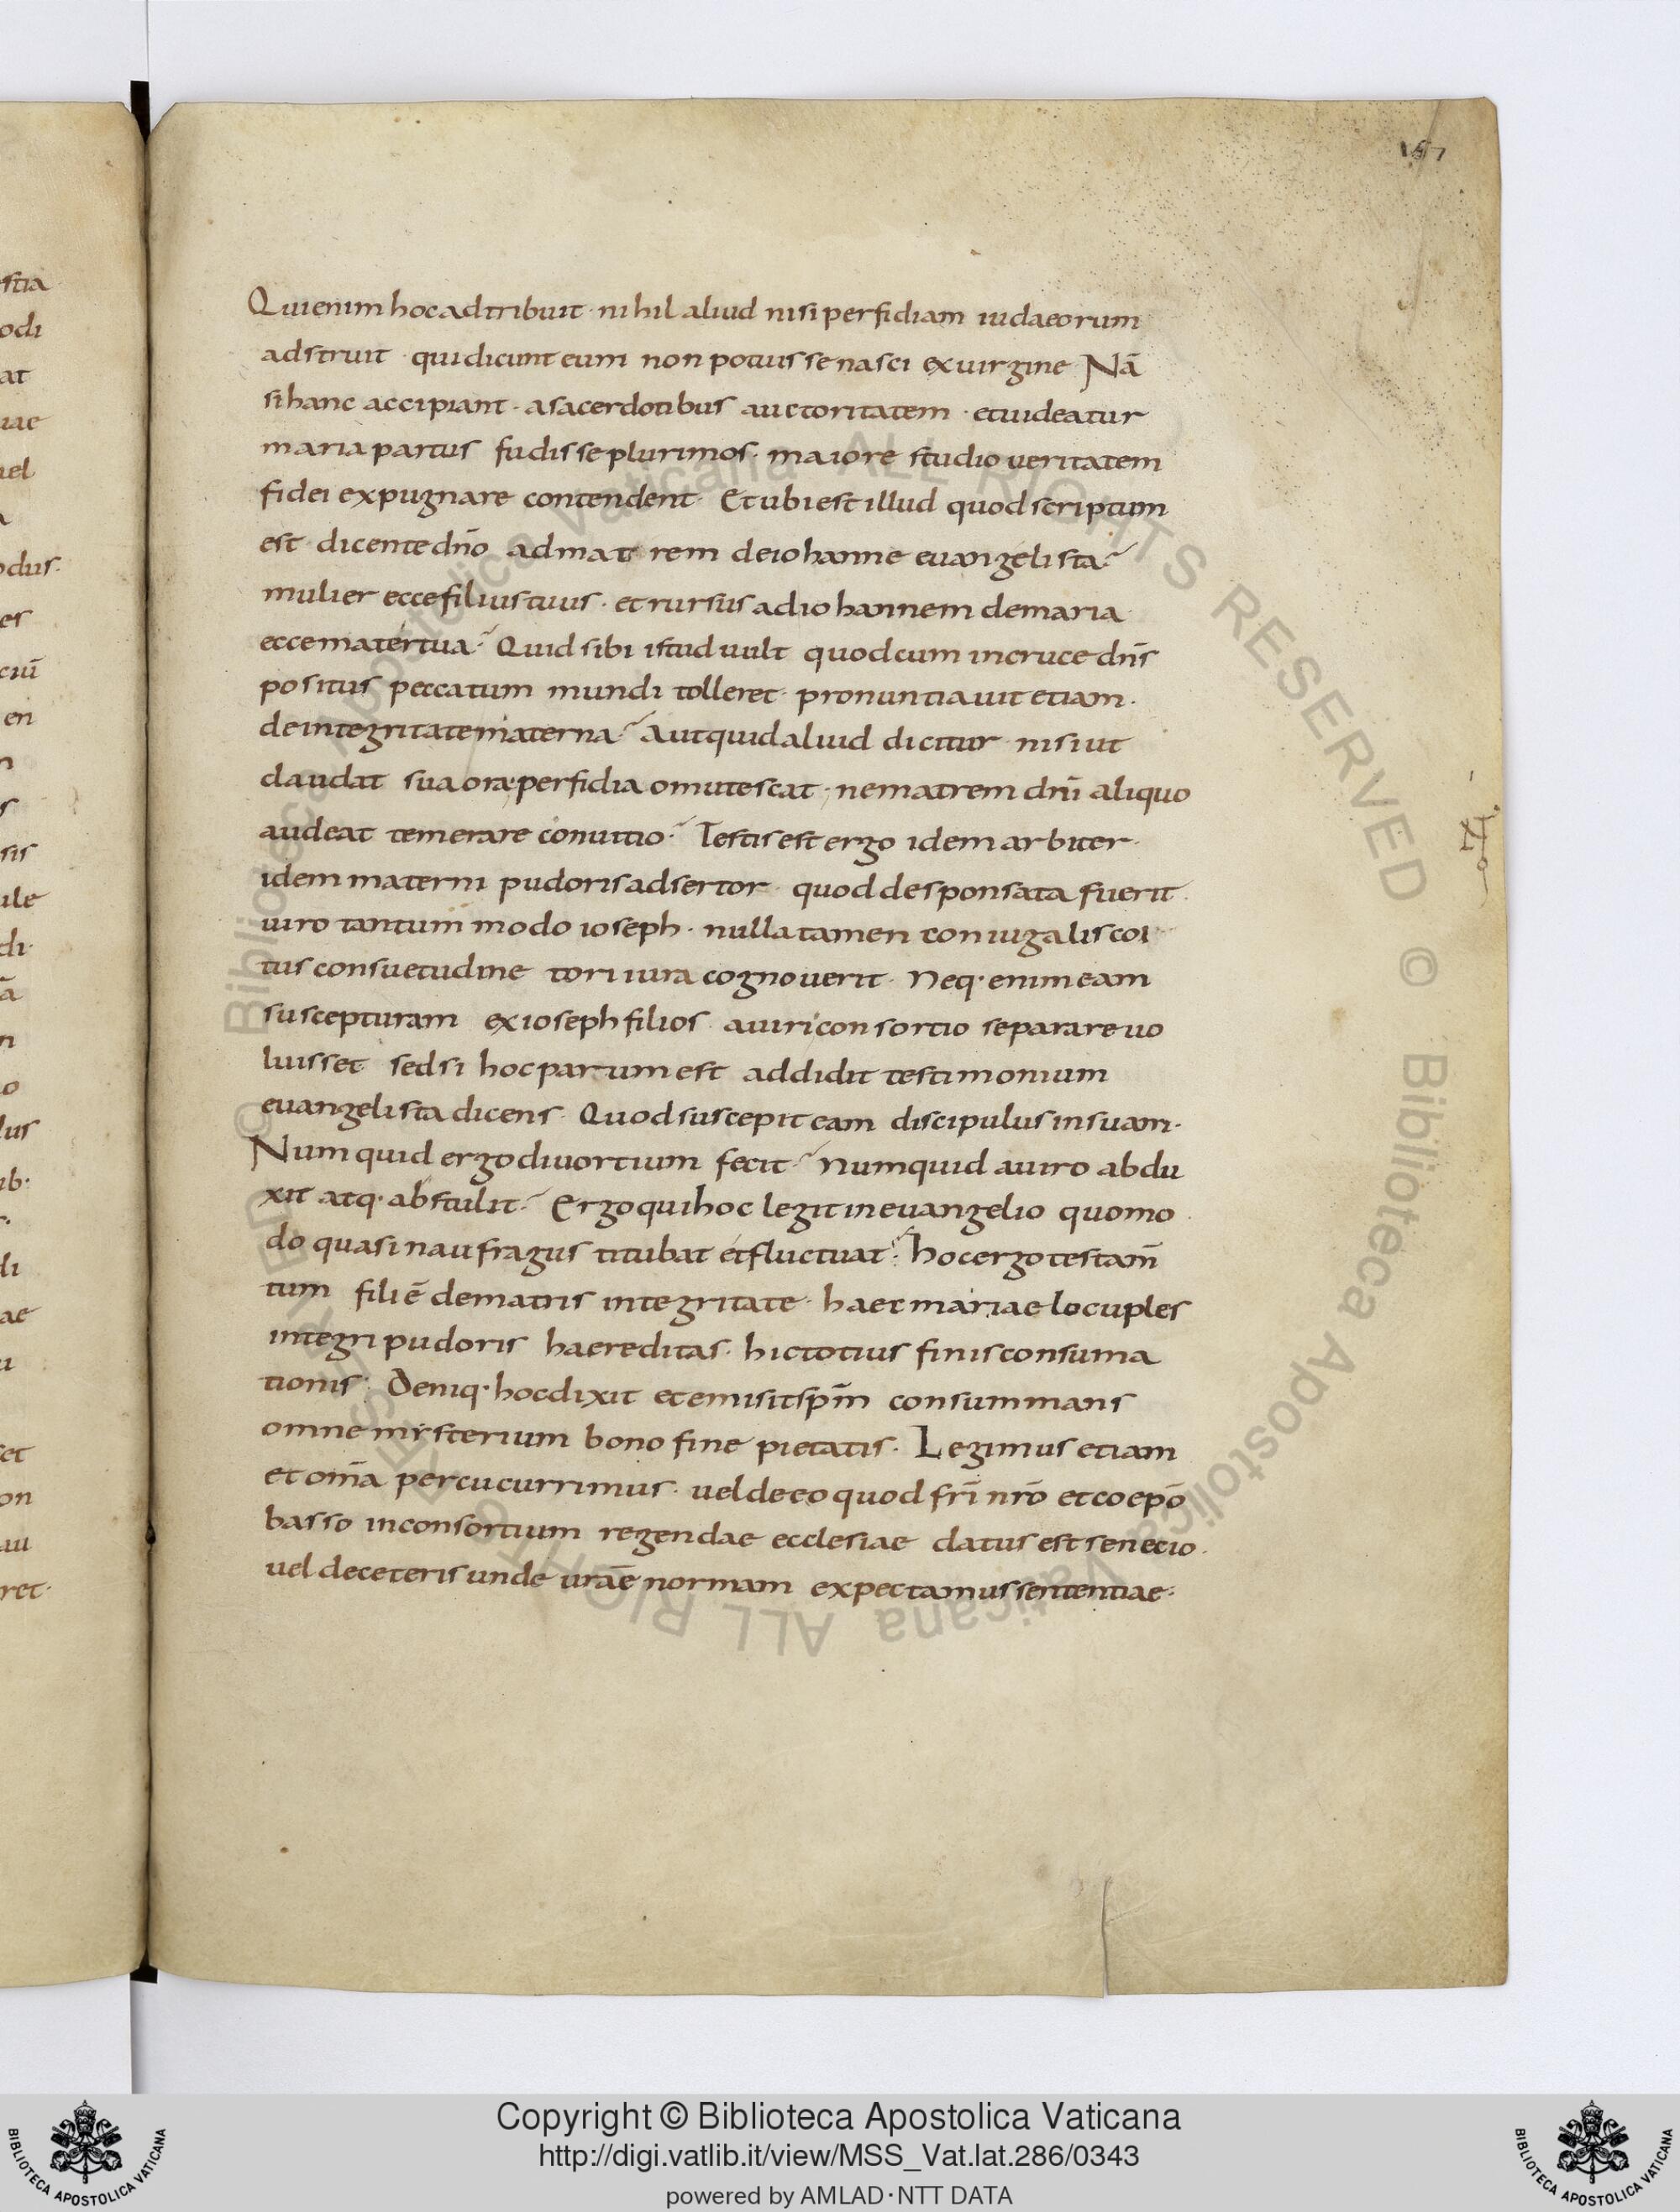 157
stia
odi
at
uae
uel
odus.
es
ciū
en
s
sis
ule
di.
ā
n
o
lus
ib.
di
ae
set
on
au
ret.
Qui enim hoc adtribuit · nihil aliud nisi perfidiam iudaeorum
adstruit · qui dicunt eum non potuisse nasci ex uirgine Nā
si hanc accipiant · a sacerdotibus auctoritatem · et uideatur
maria partus fudisse plurimos · maiore studio ueritatem
fidei expugnare contendent · Et ubi est illud quod scriptum
est dicente dn̄o ad matrem de iohanne euangelista ?
mulier ecce filius tuus · et rursus ad iohannem de maria
ecce mater tua ? Quid sibi istud uult quod cum in cruce dn̄s
positus peccatum mundi tolleret · pronuntiauit etiam ·
de integritate materna ? Aut quid aliud dicitur nisi ut
claudat sua ora perfidia omutescat · ne matrem dn̄i aliquo
audeat temerare conuitio ? Testis est ergo idem arbiter ·
idem materni pudoris adsertor quod desponsata fuerit
uiro tantum modo ioseph · nulla tamen coniugalis coi
tus consuetudine tori iura cognouerit · Neq· enim eam
suscepturam ex ioseph filios a uiri consortio separare uo
luisset sed si hoc parum est addidit testimonium
euangelista dicens · Quod suscepit eam discipulus in suam ·
Numquid ergo diuortium fecit ? Numquid a uiro abdu
xit atq· abstulit ? Ergo qui hoc legit in euangelio quomo
do quasi naufragus titubat et fluctuat ? hoc ergo testam̄
tum filī ē de matris integritate · haec mariae locuples
integri pudoris haereditas · hic totius finis consuma
tionis · Deniq· hoc dixit et emisit sp̄m consummans
omne mysterium bono fine pietatis · Legimus etiam
et om̄a percucurrimus · uel de eo quod frī nr̄o et coep̄o
basso in consortium regendae ecclesiae datus est senecio ·
uel de ceteris unde ur̄ae normam expectamus sententiae ·
© Biblioteca Apostolica Vaticana ALL RIGHTS RESERVED © Biblioteca Apostolica Vaticana ALL RIGHTS RESERVED
Copyright © Biblioteca Apostolica Vaticana
http://digi.vatlib.it/view/MSS_Vat.lat.286/0343
powered by AMLAD·NTT DATA
BIBLIOTECA APOSTOLICA VATICANA
BIBLIOTECA APOSTOLICA VATICANA